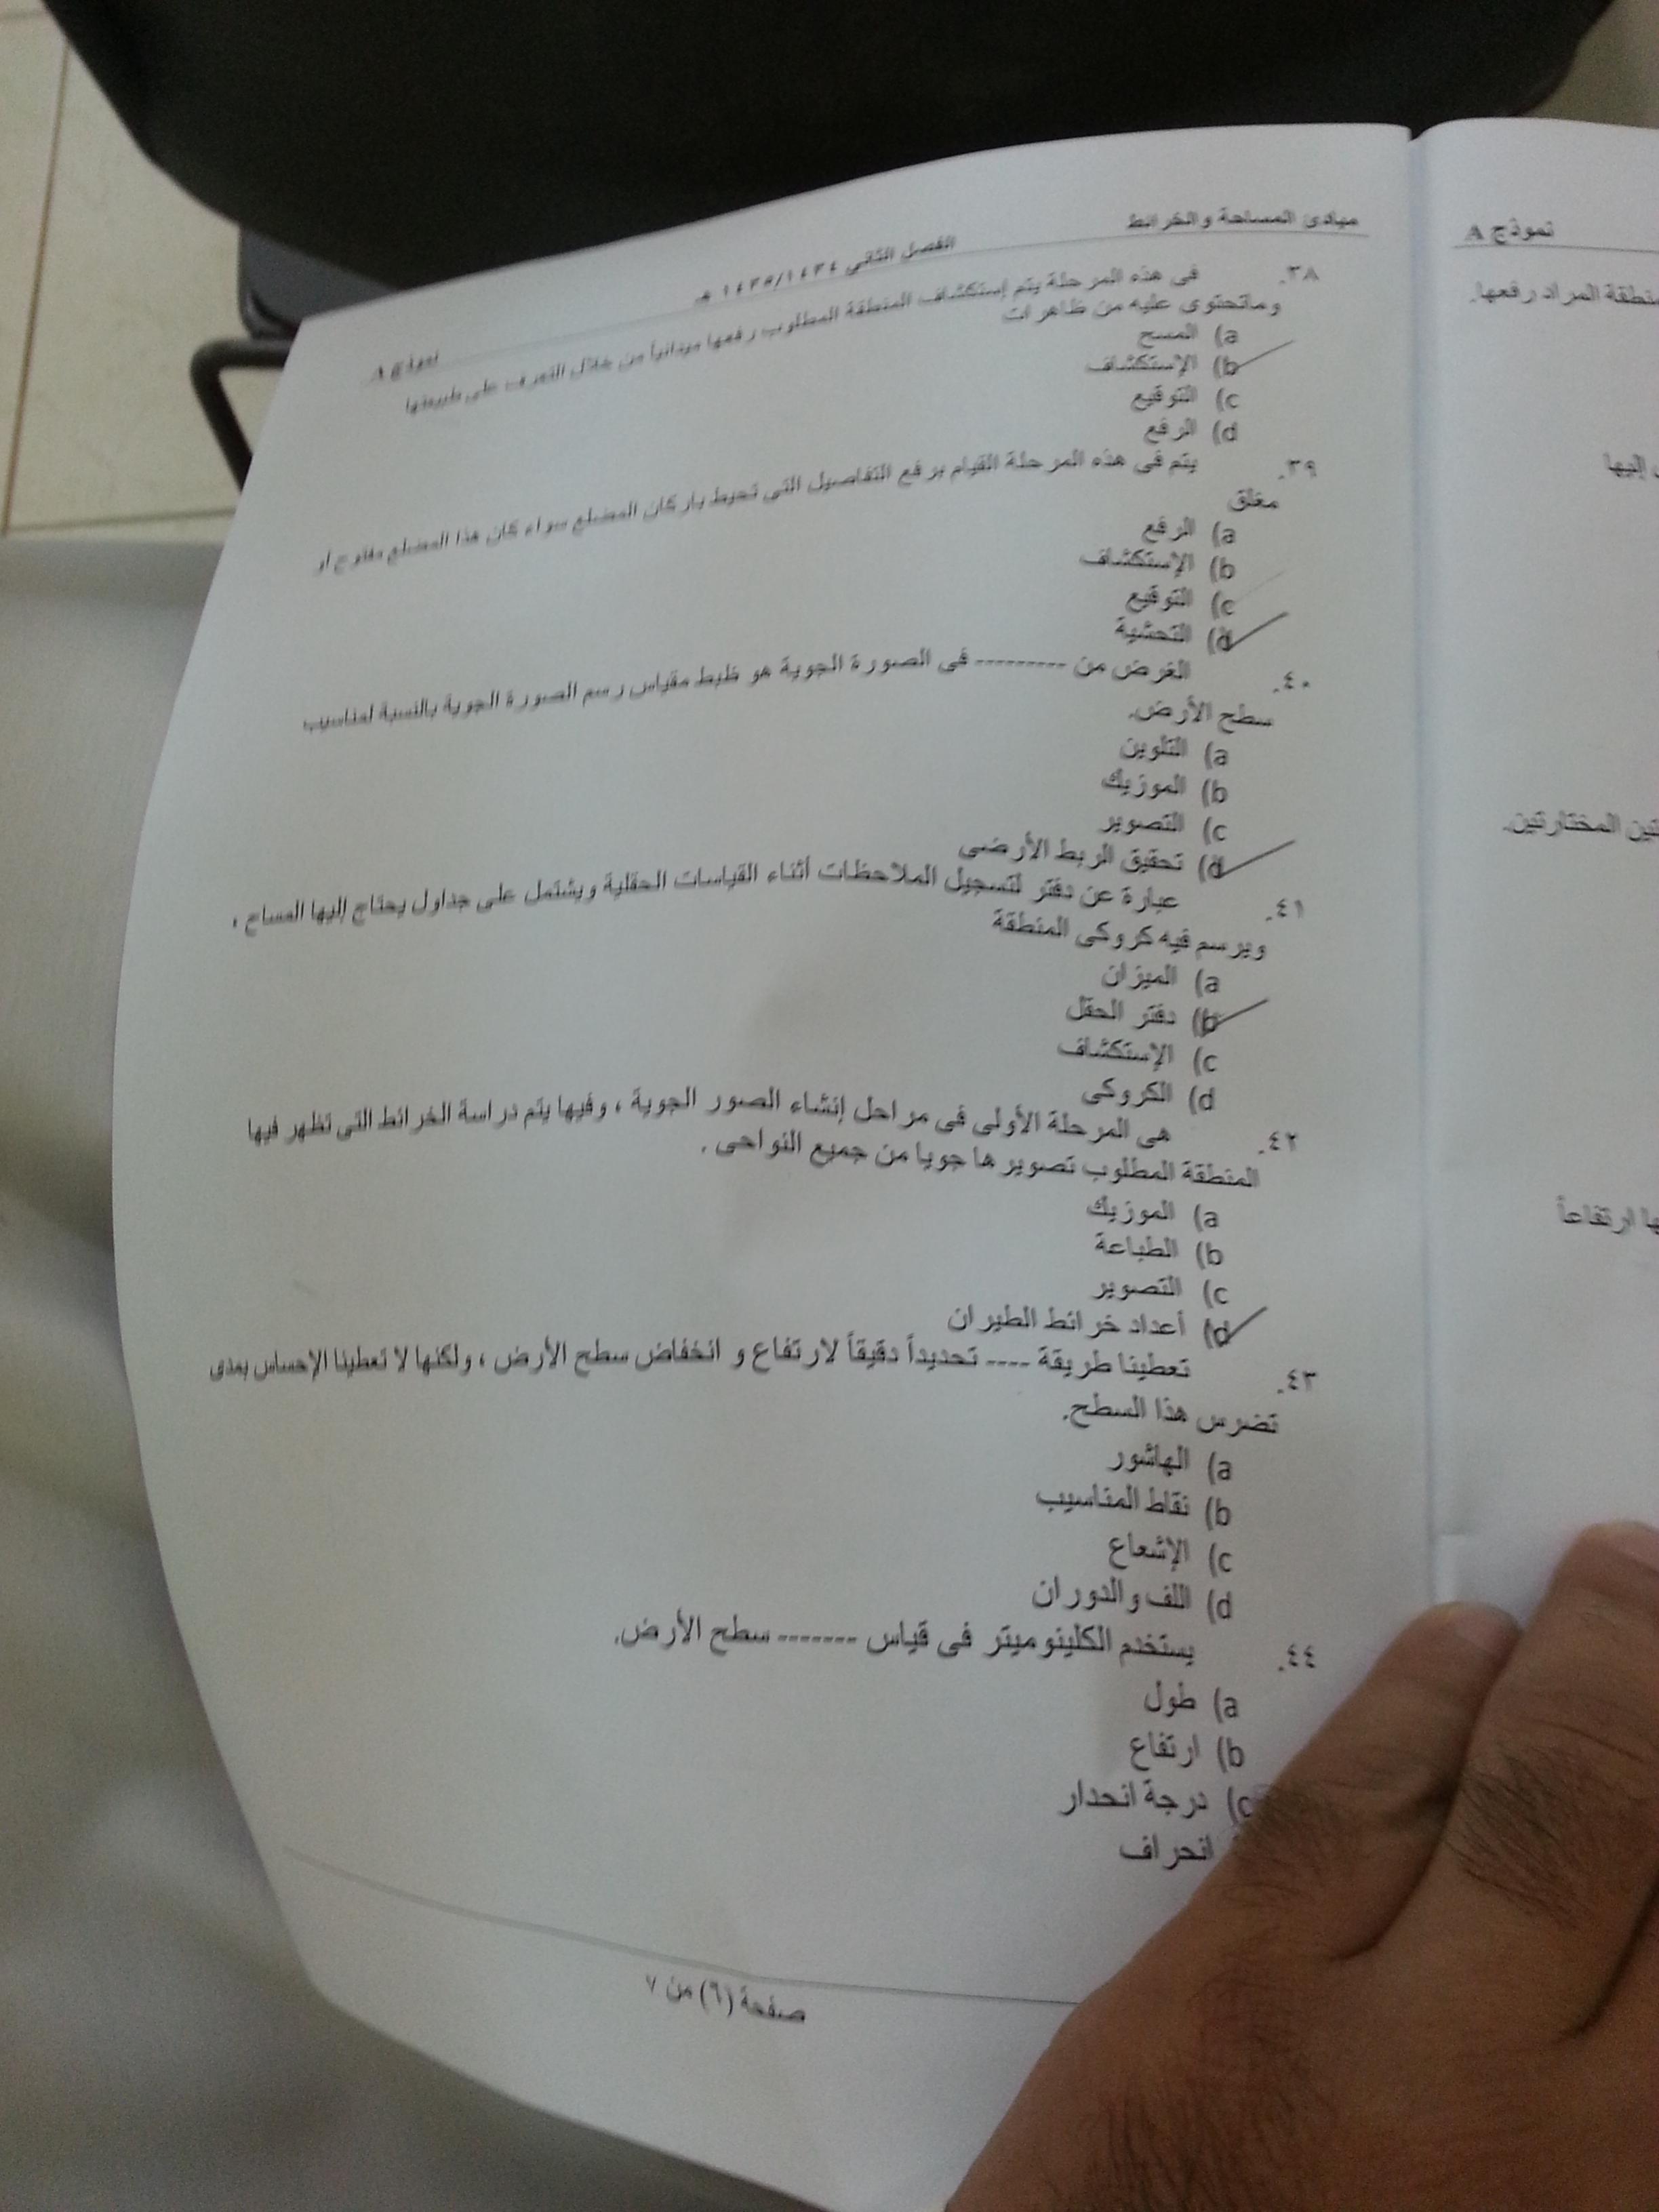 مبادئ المساحة والخرائط
الفصل الثانى ١٤٣٥/١٤٣٤ هـ
نموذج A
٣٨. فى هذه المرحلة يتم إستكشاف المنطقة المطلوب رفعها ميدانياً من خلال التعرف على طبيعتها
وماتحتوى عليه من ظاهرات
a) المسح
b) الإستكشاف
c) التوقيع
d) الرفع
٣٩. يتم فى هذه المرحلة القيام برفع التفاصيل التى تحيط باركان المضلع سواء كان هذا المضلع مفتوح أو
مغلق
a) الرفع
b) الإستكشاف
c) التوقيع
d) التحشية
٤٠. الغرض من --------- فى الصورة الجوية هو ظبط مقياس رسم الصورة الجوية بالنسبة لمناسيب
سطح الأرض.
a) التلوين
b) الموزيك
c) التصوير
d) تحقيق الربط الأرضى
٤١. عبارة عن دفتر لتسجيل الملاحظات أثناء القياسات الحقلية ويشتمل على جداول يحتاج إليها المساح ،
ويرسم فيه كروكى المنطقة
a) الميزان
b) دفتر الحقل
c) الإستكشاف
d) الكروكى
٤٢. هى المرحلة الأولى فى مراحل إنشاء الصور الجوية ، وفيها يتم دراسة الخرائط التى تظهر فيها
المنطقة المطلوب تصويرها جويا من جميع النواحى .
a) الموزيك
b) الطباعة
c) التصوير
d) أعداد خرائط الطيران
٤٣. تعطينا طريقة ---- تحديداً دقيقاً لارتفاع و انخفاض سطح الأرض ، ولكنها لا تعطينا الإحساس بمدى
تضرس هذا السطح.
a) الهاشور
b) نقاط المناسيب
c) الإشعاع
d) اللف والدوران
٤٤. يستخدم الكلينوميتر فى قياس ------- سطح الأرض.
a) طول
b) ارتفاع
c) درجة انحدار
انحراف
صفحة (٦) من ٧
نموذج A
المراد رفعها.
إليها
المختارتين.
ارتفاعاً